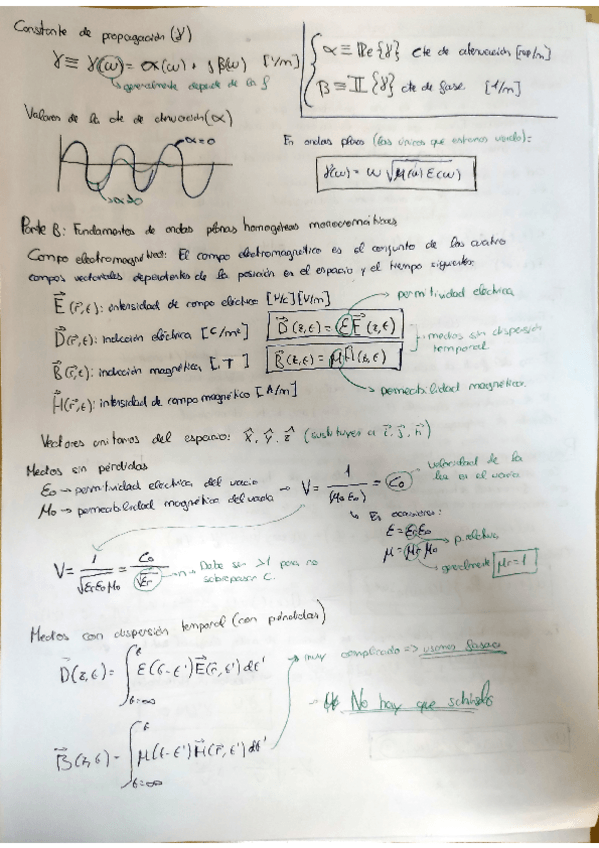 Constante de propagación (γ)
γ ≡ γ(ω) = α(ω) + jβ(ω) [1/m]
↳ generalmente depende de la f
α ≡ Re{γ} cte de atenuación [nep/m]
β ≡ Im{γ} cte de fase [1/m]
Valores de la cte de atenuación (α)
α=0
α>0
En ondas planas (las únicas que estamos viendo):
γ(ω) = ω √μ(ω) ε(ω)
Parte B: Fundamentos de ondas planas homogéneas monocromáticas
Campo electromagnético: El campo electromagnético es el conjunto de los cuatro
campos vectoriales dependientes de la posición en el espacio y el tiempo siguientes:
E(r,t): intensidad de campo eléctrico [V/m]
D(r,t): inducción eléctrica [C/m²]
B(r,t): inducción magnética [T]
H(r,t): intensidad de campo magnético [A/m]
→ permitividad eléctrica
D(z,t) = εE(z,t)
B(z,t) = μH(z,t)
medios sin dispersión
temporal
→ permeabilidad magnética.
Vectores unitarios del espacio: x̂, ŷ, ẑ (sustituyen a i, j, k)
Medios sin pérdidas
ε0 → permitividad electrica del vacio
μ0 → permeabilidad magnética del vacío → V = 1/(μ0 ε0) = C0
velocidad de la
luz en el vacío
ε = εr ε0
μ = μr μ0
p. relativa
generalmente μr = 1
V = 1/√εr ε0 μ0 = C0/√εr → n → Debe ser >1 para no
sobrepasar C.
Medios con dispersión temporal (con pérdidas)
D(z,t) = ∫ ε(t-t') E(r,t') dt'
→ muy complicado => usamos fasores
→ No hay que
B(z,t) = ∫ μ(t-t') H(r,t') dt'